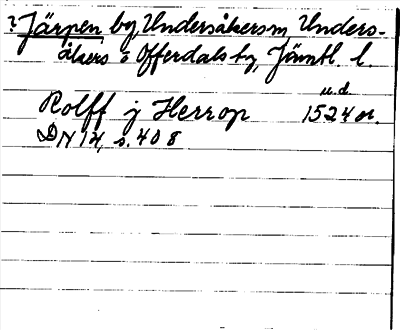 ? Järpen by, Undersåkers sn, Unders-
åkers o Offerdals tg, Jämtl. l.
u. d.
Rolff j Herrop 1524 or.
DN 14, s. 408